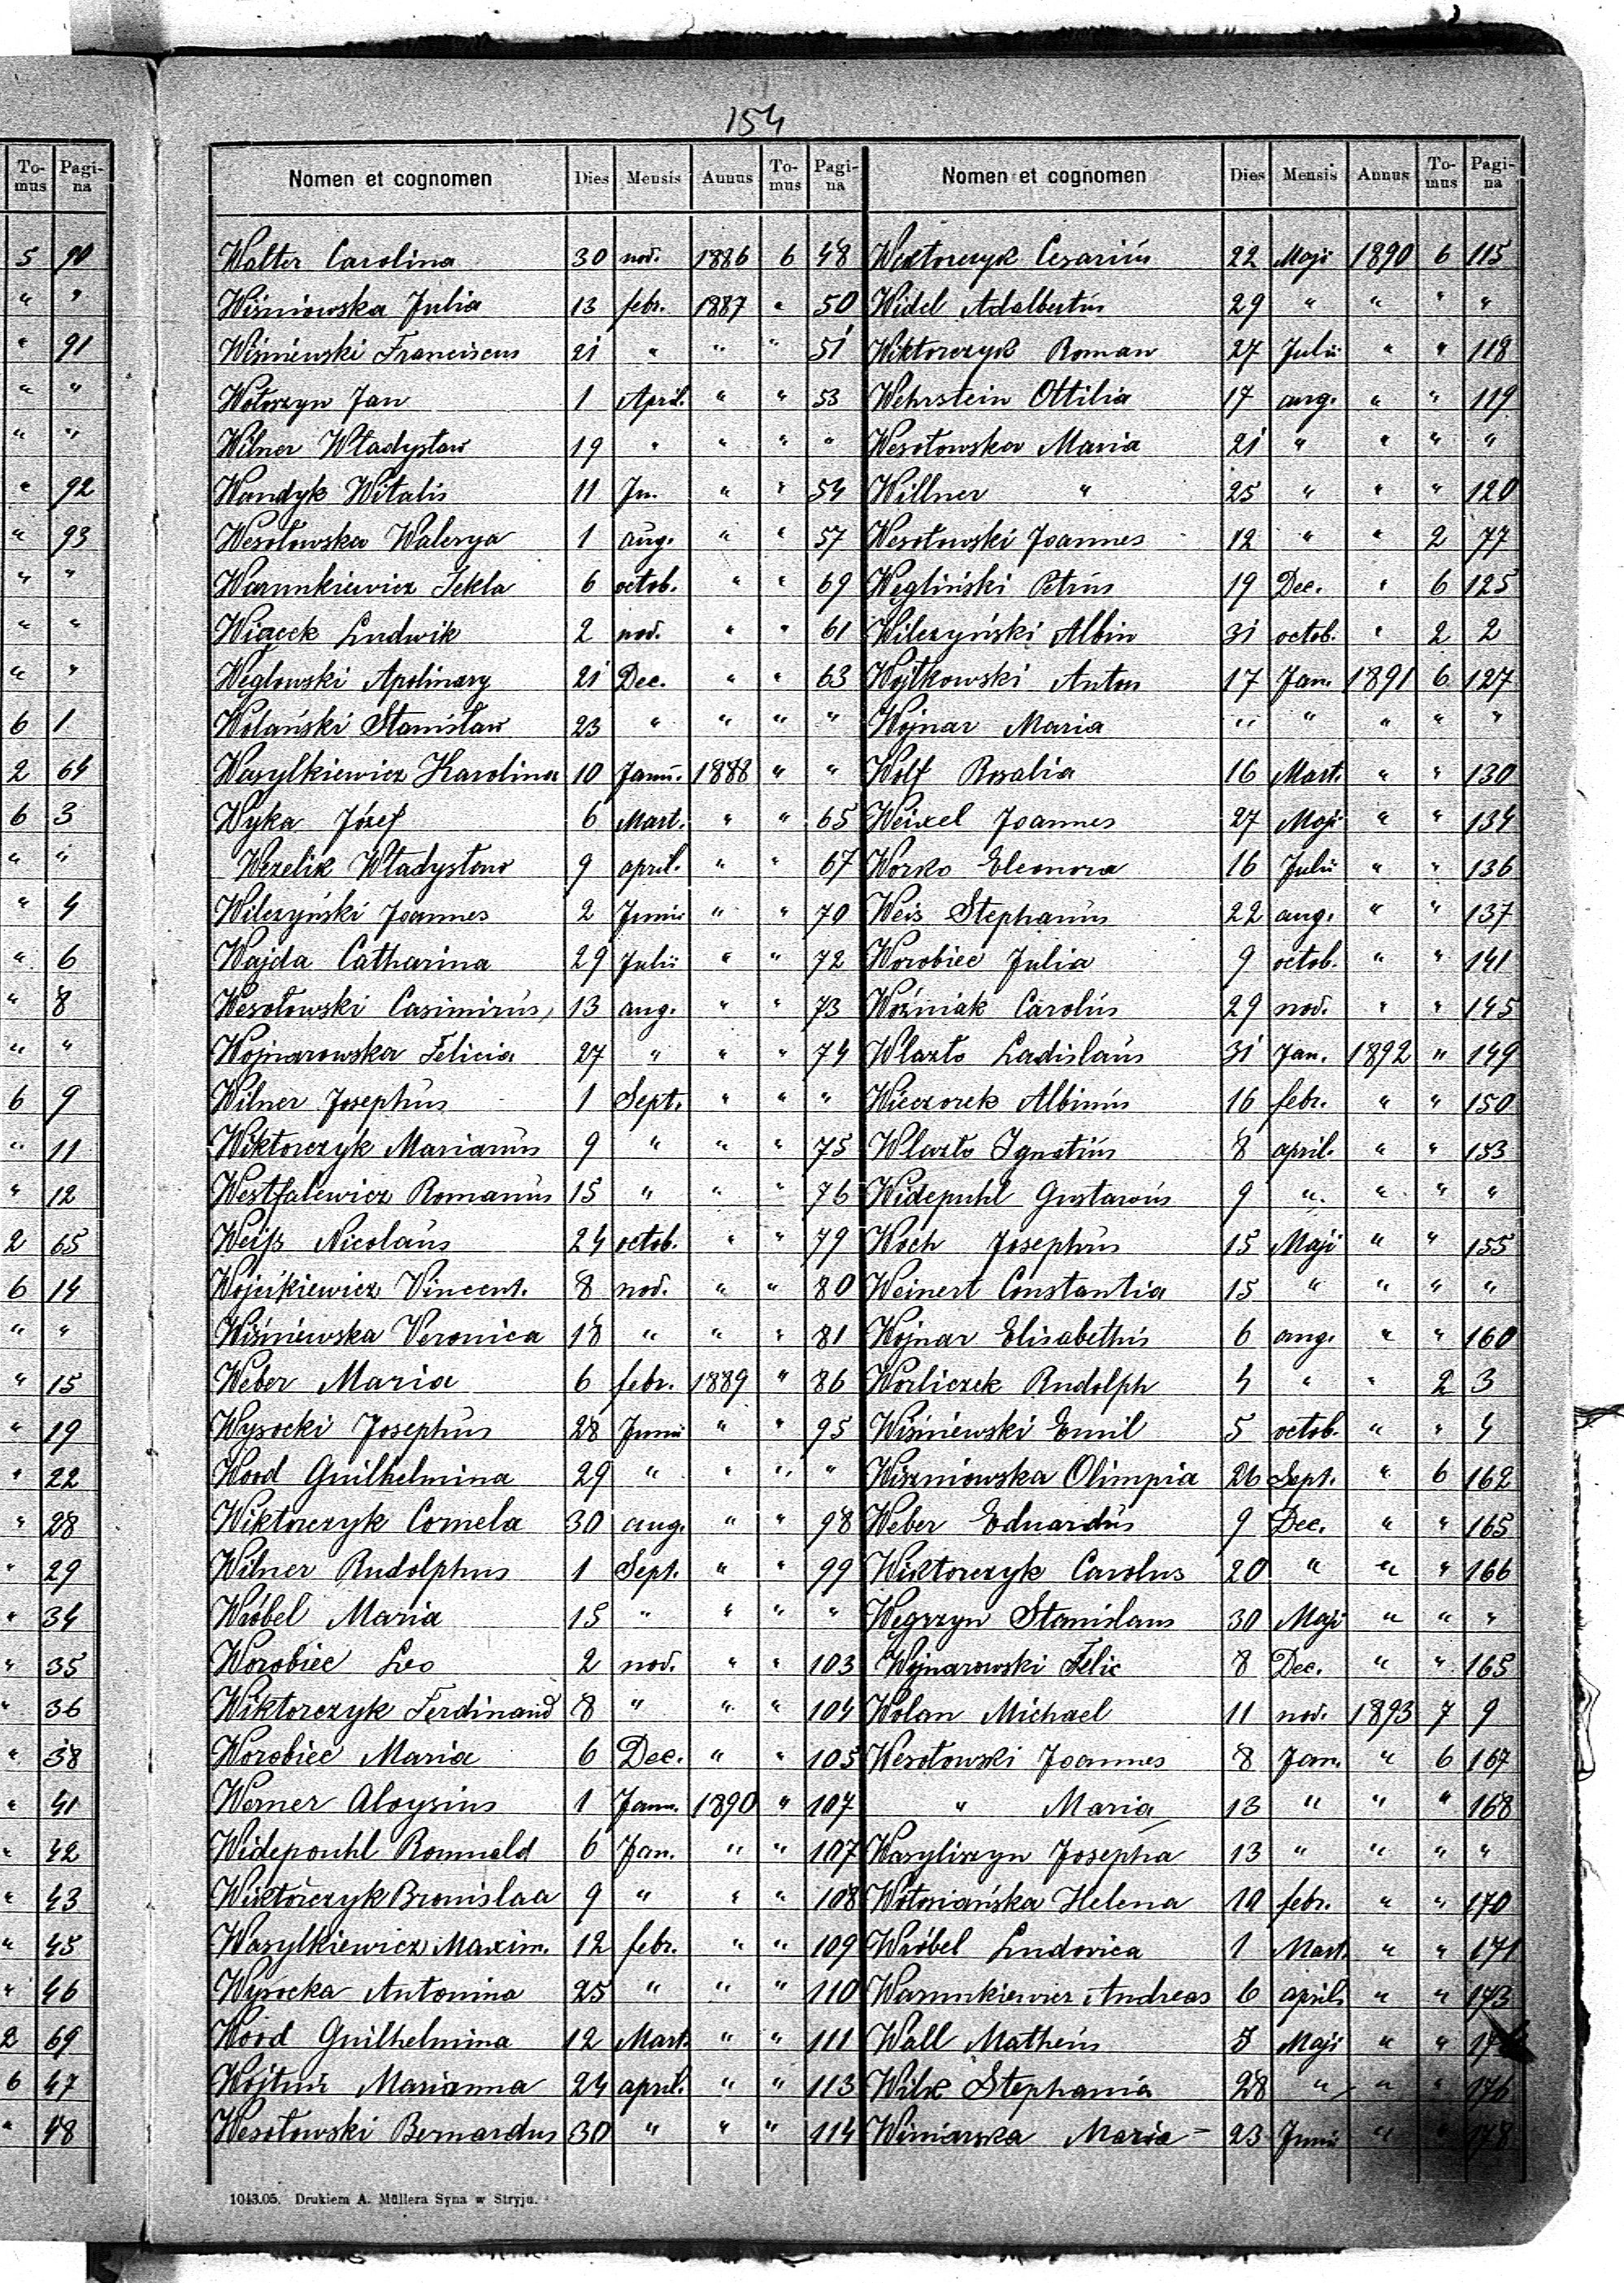 154
To-mus Pagi-na
5 90
" "
" 91
" "
" "
" 92
" 93
" "
" "
" "
6 1
2 64
6 3
" "
" 4
" 6
" 8
" "
6 9
" 11
" 12
2 65
6 14
" "
" 15
" 19
" 22
" 28
" 29
" 34
" 35
" 36
" 38
" 41
" 42
" 43
" 45
" 46
2 69
6 47
" 48
Nomen et cognomen Dies Mensis Annus To-mus Pagi-na
Walter Carolina 30 nov. 1886 6 48
Wiśniowska Julia 13 febr. 1887 " 50
Wiśniewski Franciscus 21 " " " 51
Wołoszyn Jan 1 April. " " 53
Wilner Władysław 19 " " " "
Wandyk Witalis 11 Jn. " " 54
Wesołowska Walerya 1 aug. " " 57
Warunkiewicz Tekla 6 octob. " " 69
Wiącek Ludwik 2 nov. " " 61
Węglowski Apolinary 21 Dec. " " 63
Wolański Stanisław 23 " " " "
Wasylkiewicz Karolina 10 Janu. 1888 " "
Wyka Józef 6 Mart. " " 65
Wezelik Władysław 9 april. " " 67
Wilczyński Joannes 2 Junii " " 70
Wajda Catharina 29 Julii " " 72
Wesołowski Casimirus 13 aug. " " 73
Wojnarowska Felicia 27 " " " 74
Wilner Josephus 1 Sept. " " "
Wiktorczyk Marianus 9 " " " 75
Westfalewicz Romanus 15 " " " 76
Weiſs Nicolaus 24 octob. " " 79
Wojcikiewicz Vincent. 8 nov. " " 80
Wiśniewska Veronica 18 " " " 81
Weber Maria 6 febr. 1889 " 86
Wysocki Josephus 28 Junii " " 95
Wood Guilhelmina 29 " " " "
Wiktorczyk Cornela 30 aug. " " 98
Wilner Rudolphus 1 Sept. " " 99
Wróbel Maria 15 " " " "
Worobiec Leo 2 nov. " " 103
Wiktorczyk Ferdinand 8 " " " 104
Worobiec Maria 6 Dec. " " 105
Werner Aloysius 1 Jann. 1890 " 107
Widepouhl Romuald 6 Jan. " " 107
Wiktorczyk Bronislaa 9 " " " 108
Wasylkiewicz Maxim. 12 febr. " " 109
Wysocka Antonina 25 " " " 110
Wood Guilhelmina 12 Mart. " " 111
Wojtuń Marianna 24 april. " " 113
Wesołowski Bernardus 30 " " " 114
Nomen et cognomen Dies Mensis Annus To-mus Pagi-na
Wiktorczyk Cesarius 22 Maji 1890 6 115
Widel Adalbertus 29 " " " "
Wiktorczyk Roman 27 Julii " " 118
Wehrstein Ottilia 17 aug. " " 119
Wesołowska Maria 21 " " " "
Willner " 25 " " " 120
Wesołowski Joannes 12 " " 2 77
Węgliński Petrus 19 Dec. " 6 125
Wilczyński Albin 31 octob. " 2 2
Wojtkowski Anton 17 Jan. 1891 6 127
Wojnar Maria " " " " "
Wolf Rosalia 16 Mart. " " 130
Weixel Joannes 27 Maji " " 134
Worko Eleonora 16 Julii " " 136
Weis Stephanus 22 aug. " " 137
Worobiec Julia 9 octob. " " 141
Woźniak Carolus 29 nov. " " 145
Wlazło Ladislaus 31 Jan. 1892 " 149
Wieczorek Albinus 16 febr. " " 150
Wlazło Ignatius 8 april. " " 153
Widepuhl Gustavus 9 " " " "
Woch Josephus 15 Maji " " 155
Weinert Constantia 15 " " " "
Wojnar Elisabethis 6 aug. " " 160
Worliczek Rudolph 4 " " 2 3
Wiśniewski Emil 5 octob. " " 4
Wiszniowska Olimpia 26 Sept. " 6 162
Weber Eduardus 9 Dec. " " 165
Wiktorczyk Carolus 20 " " " 166
Węgrzyn Stanislaus 30 Maji " " "
Wojnarowski Felic 8 Dec. " " 165
Wolan Michael 11 nov. 1893 7 9
Wesołowski Joannes 8 Jan. " 6 167
" Maria 13 " " " 168
Wasyliszyn Josepha 13 " " " "
Wołosiańska Helena 10 febr. " " 170
Wróbel Ludovica 1 Mart. " " 171
Warunkiewicz Andreas 6 april. " " 173
Wall Matheus 5 Maji " "
Wilk Stephania 28 " " " 176
Winiarska Maria 23 Junii " " 178
1043.05. Drukiem A. Müllera Syna w Stryju.